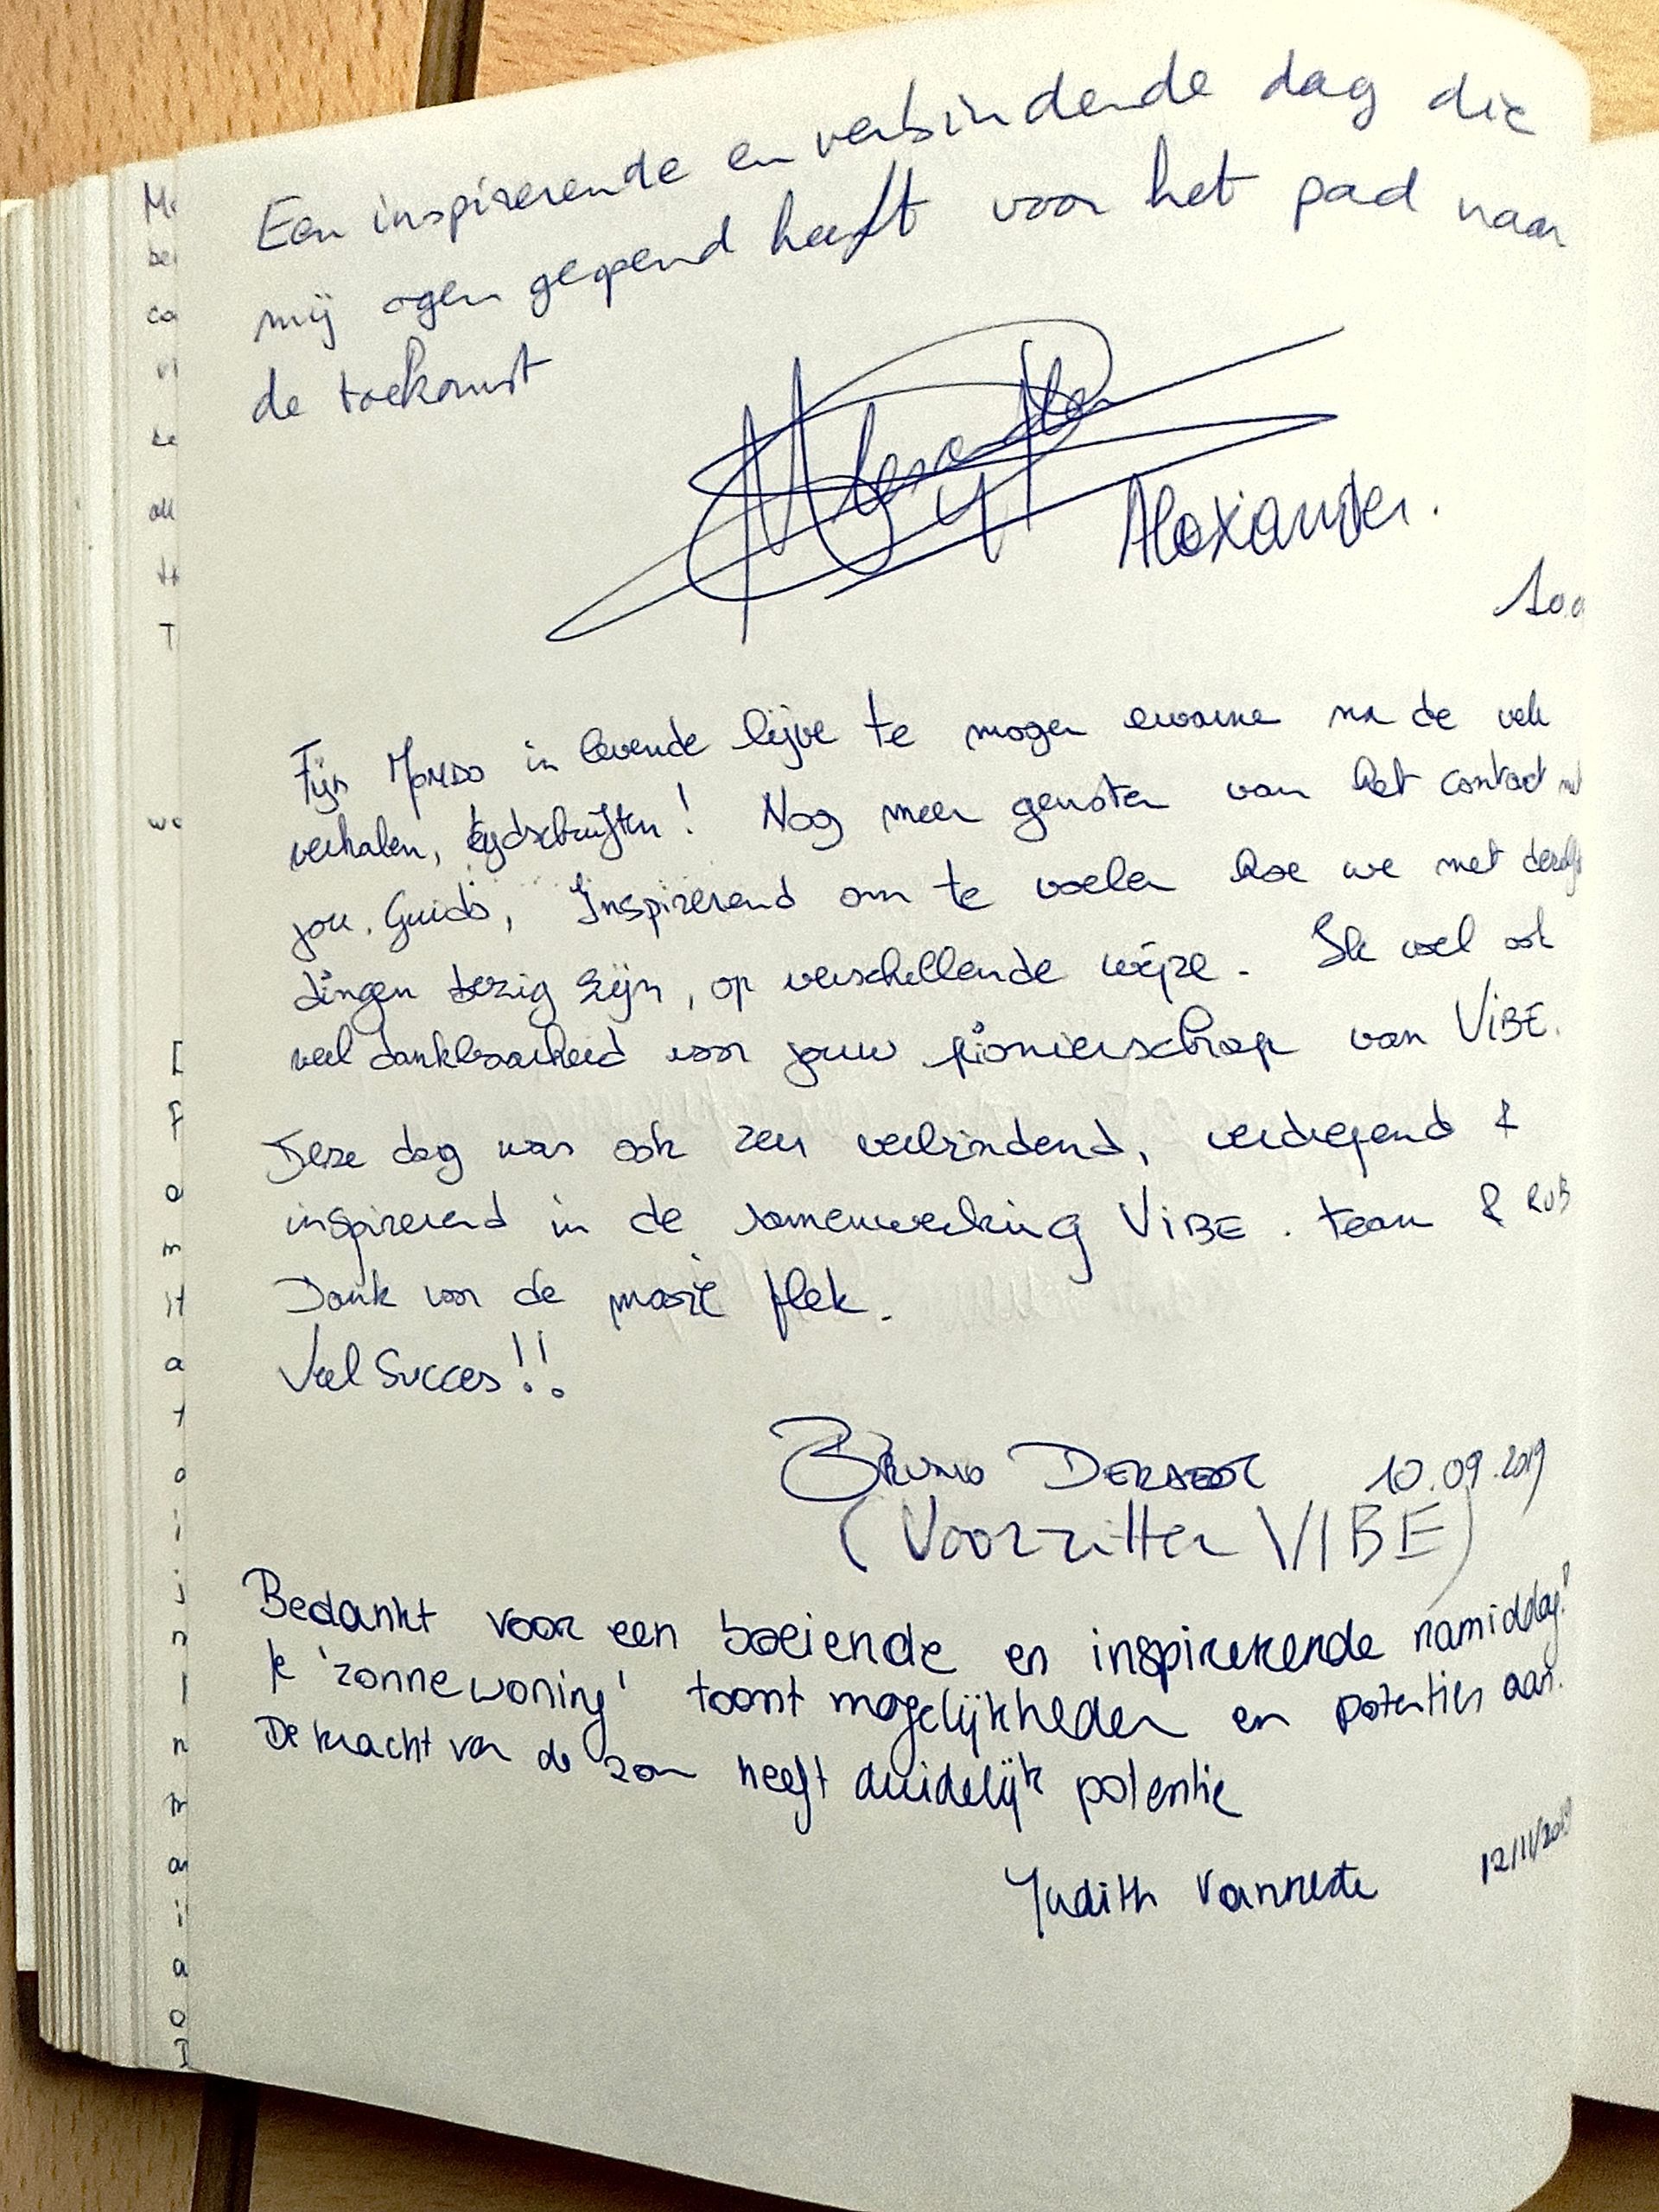 Een inspirerende en verbindende dag die
mij ogen geopend heeft voor het pad naar
de toekomst
Alexander.
10.0
Fijn MONDO in levende lijve te mogen ervaren na de vele
verhalen, tijdschriften! Nog meer genoten van het contact met
jou. Guido, Inspirerend om te voelen hoe we met dezelfde
dingen bezig zijn, op verschellende wijze. Ik voel ook
veel dankbaarheid voor jouw pionierschap van ViBE.
Deze dag was ook zeer verbindend, verdiepend &
inspirerend in de samenwerking ViBE. team & RvB
Dank voor de mooie plek.
Veel Succes!!
BRUNO 10.09.2019
(Voorzitter VIBE)
Bedankt voor een boeiende en inspirerende namiddag!
Je 'zonnewoning' toont mogelijkheden en potenties aan.
De kracht van de zon heeft duidelijk potentie
Judith Vanneste 12/11/2019